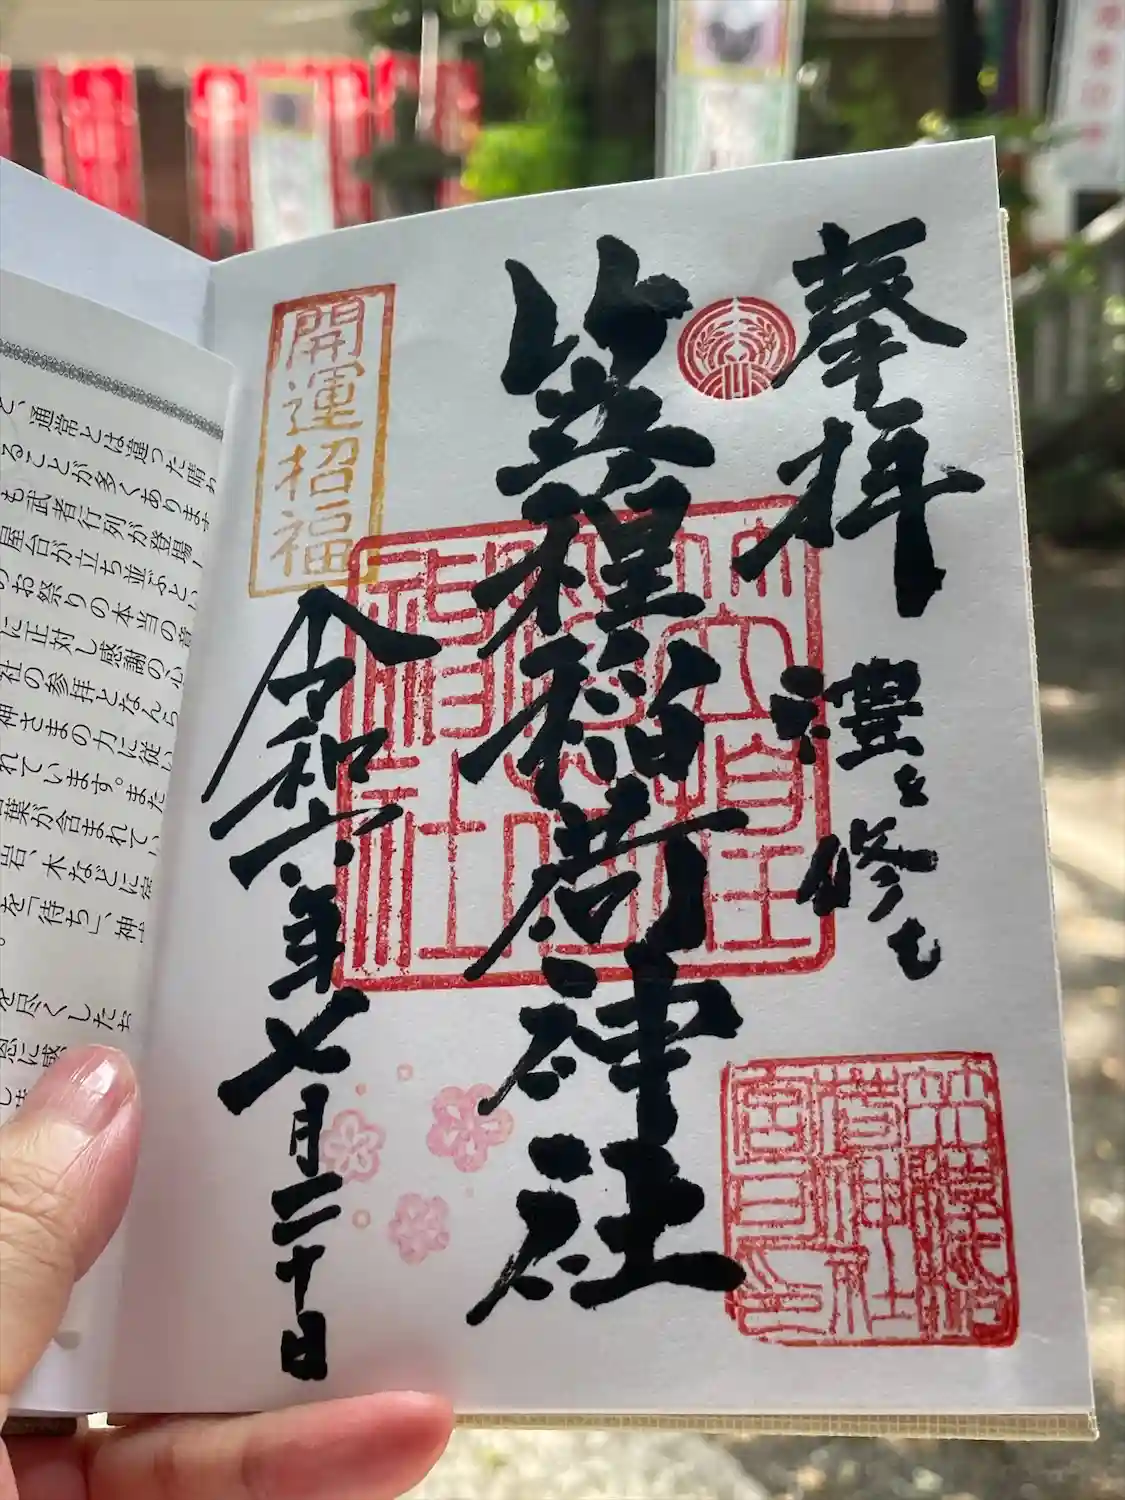 奉拝
禮を修む
笠䅣稲荷神社
令和六年七月二十日
開運招福
、通常とは違った晴
ることが多くあります
も武者行列が登場し
屋台が立ち並ぶとい
お祭りの本当の意
に正対し感謝の心
社の参拝となんら
神さまの力に従い
れています。また
葉が含まれてい
岩、木などに
を「待ち」、神
。
を尽くしたお
恩に感
しま